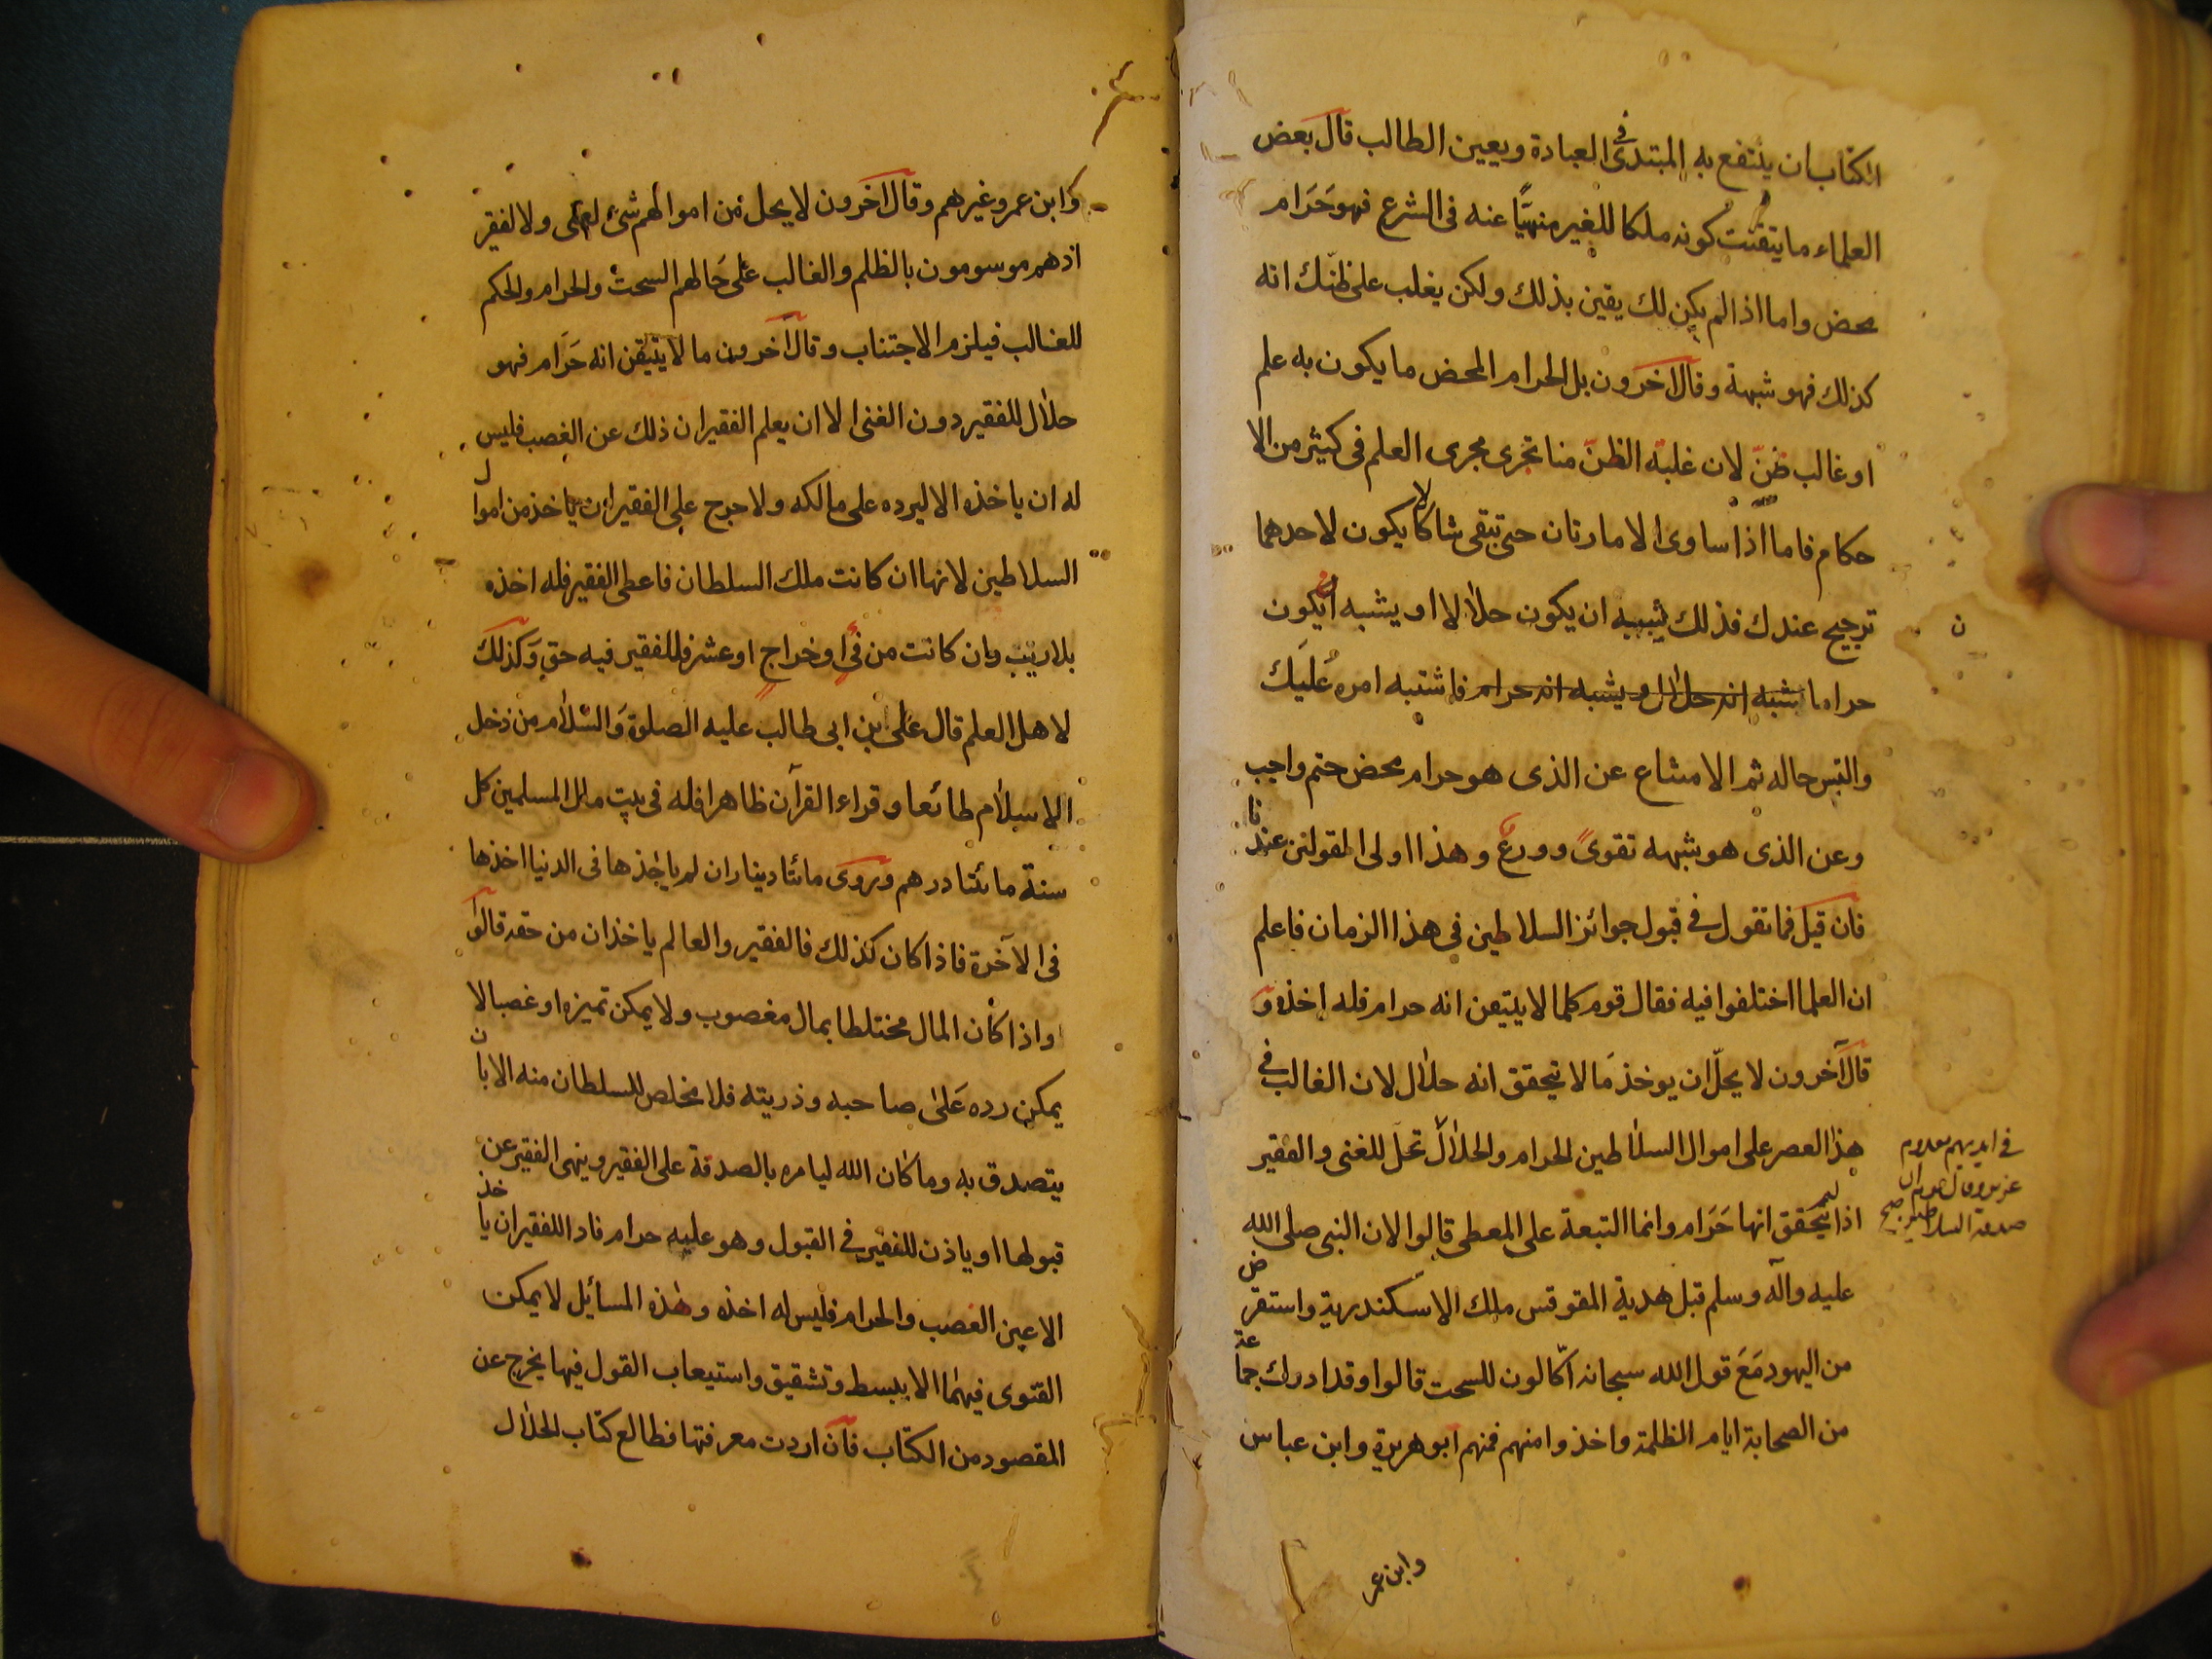 الكتاب ان ينتفع به المبتدى فى العبادة ويعين الطالب قال بعض
العلماء ما يتقنت كونه ملكا للغير منهيًّا عنه فى الشرع فهو حَرَام
محض واما اذا لم يكن لك يقين بذلك ولكن يغلب على ظنّك انه
كذلك فهو شبهة وقال اخرون بل الحرام المحض ما يكون به علم
او غالب ظنّ لان غلبة الظنّ منا تجرى مجرى العلم فى كيثر من الا
حكام فاما اذا ساوى الامارتان حتى تبقى شاكا لا يكون لاحدهما
ترجيح عندك فذلك شبهه ان يكون حلالا او يشبه ان يكون
حراما يشبه انه حلال ويشبه انه حرام فاشتبه امره عَليَك
والتبس حاله ثم الامتناع عن الذى هو حرام محض حتم واجب
وعن الذى هو شبهه تقوىً وورعٌ وهذا اولى القولين عندنا
فان قيل فما تقول فى قبول جوائز السلاطين فى هذا الزمان فاعلم
ان العلما اختلفوا فيه فقال قوم كلما لا يتيقن انه حرام فله اخذه و
قال آخرون لا يحلّ ان يوخذ مَا لا يتحقق انه حلال لان الغالب فى
هذا العصر على اموال السلاطين الحرام والحلال فى ايديهم معدوم
عزيز وقال قوم ان
صدقة السلاطين صح
تحلّ للغنى والفقير
اذا لم يتحقق انها حَرَام وانما التبعة على المعطى قالوا لان النبى صلى الله
عليه وآله وسلم قبل هدية المقوقس ملك الاسكندرية واستقرض
من اليهود مَعَ قول الله سبحانه اكّالون للسحت قالوا وقد ادرك جماعة
من الصحابة ايام الظلمة واخذوا منهم فمنهم ابو هريرة وابن عباس
وابن عمر
وابن عمر وغيرهم وقال آخَرون لا يحل من اموالهم شئ لغنى ولا لفقير
اذ هم موسومون بالظلم والغالب عَلى حَالهم السحت والحرام والحكم
للغالب فيلزم الاجتناب وقال آخرون ما لا يتيقن انه حَرَام فهو
حلال للفقير دون الغنى الا ان يعلم الفقير ان ذلك عن الغصب فليس
له ان ياخذه الا ليرده على مالكه ولا حرج على الفقير ان ياخذ من اموال
السلاطين لانها ان كانت ملك السلطان فاعطى الفقير فله اخذه
بلا ريب وان كانت من فئ او خراج او عشر فللفقير فيه حق وَكذلك
لاهل العلم قال على بن ابى طالب عليه الصلوة وَالسّلام من دخل
الاسلام طائعا وقراء القرآن ظاهرا فله فى بيت مال المسلمين كل
سنة مائتا درهم وروى مائتا دينار ان لم ياخذها فى الدنيا اخذها
فى الآخرة فاذا كان كذلك فالفقير والعالم ياخذان من حقه قالوا
واذا كان المال مختلطا بمال مغصوب ولا يمكن تميزه او غصبا لا
يمكن رده عَلىٰ صاحبه وذريته فلا مخلص للسلطان منه الا بان
يتصدق به وما كان الله ليامره بالصدقة على الفقير وينهى الفقير عن
قبولها او ياذن للفقير فى القبول وهو عليه حرام فاذا للفقير ان ياخذ
الا عين الغصب والحرام فليس له اخذه وهٰذه المسائل لا يمكن
الفتوى فيهما الا ببسط وتشقيق واستيعاب القول فيها يخرج عن
المقصود من الكتاب فان اردت معرفتها فطالع كتاب الحلال